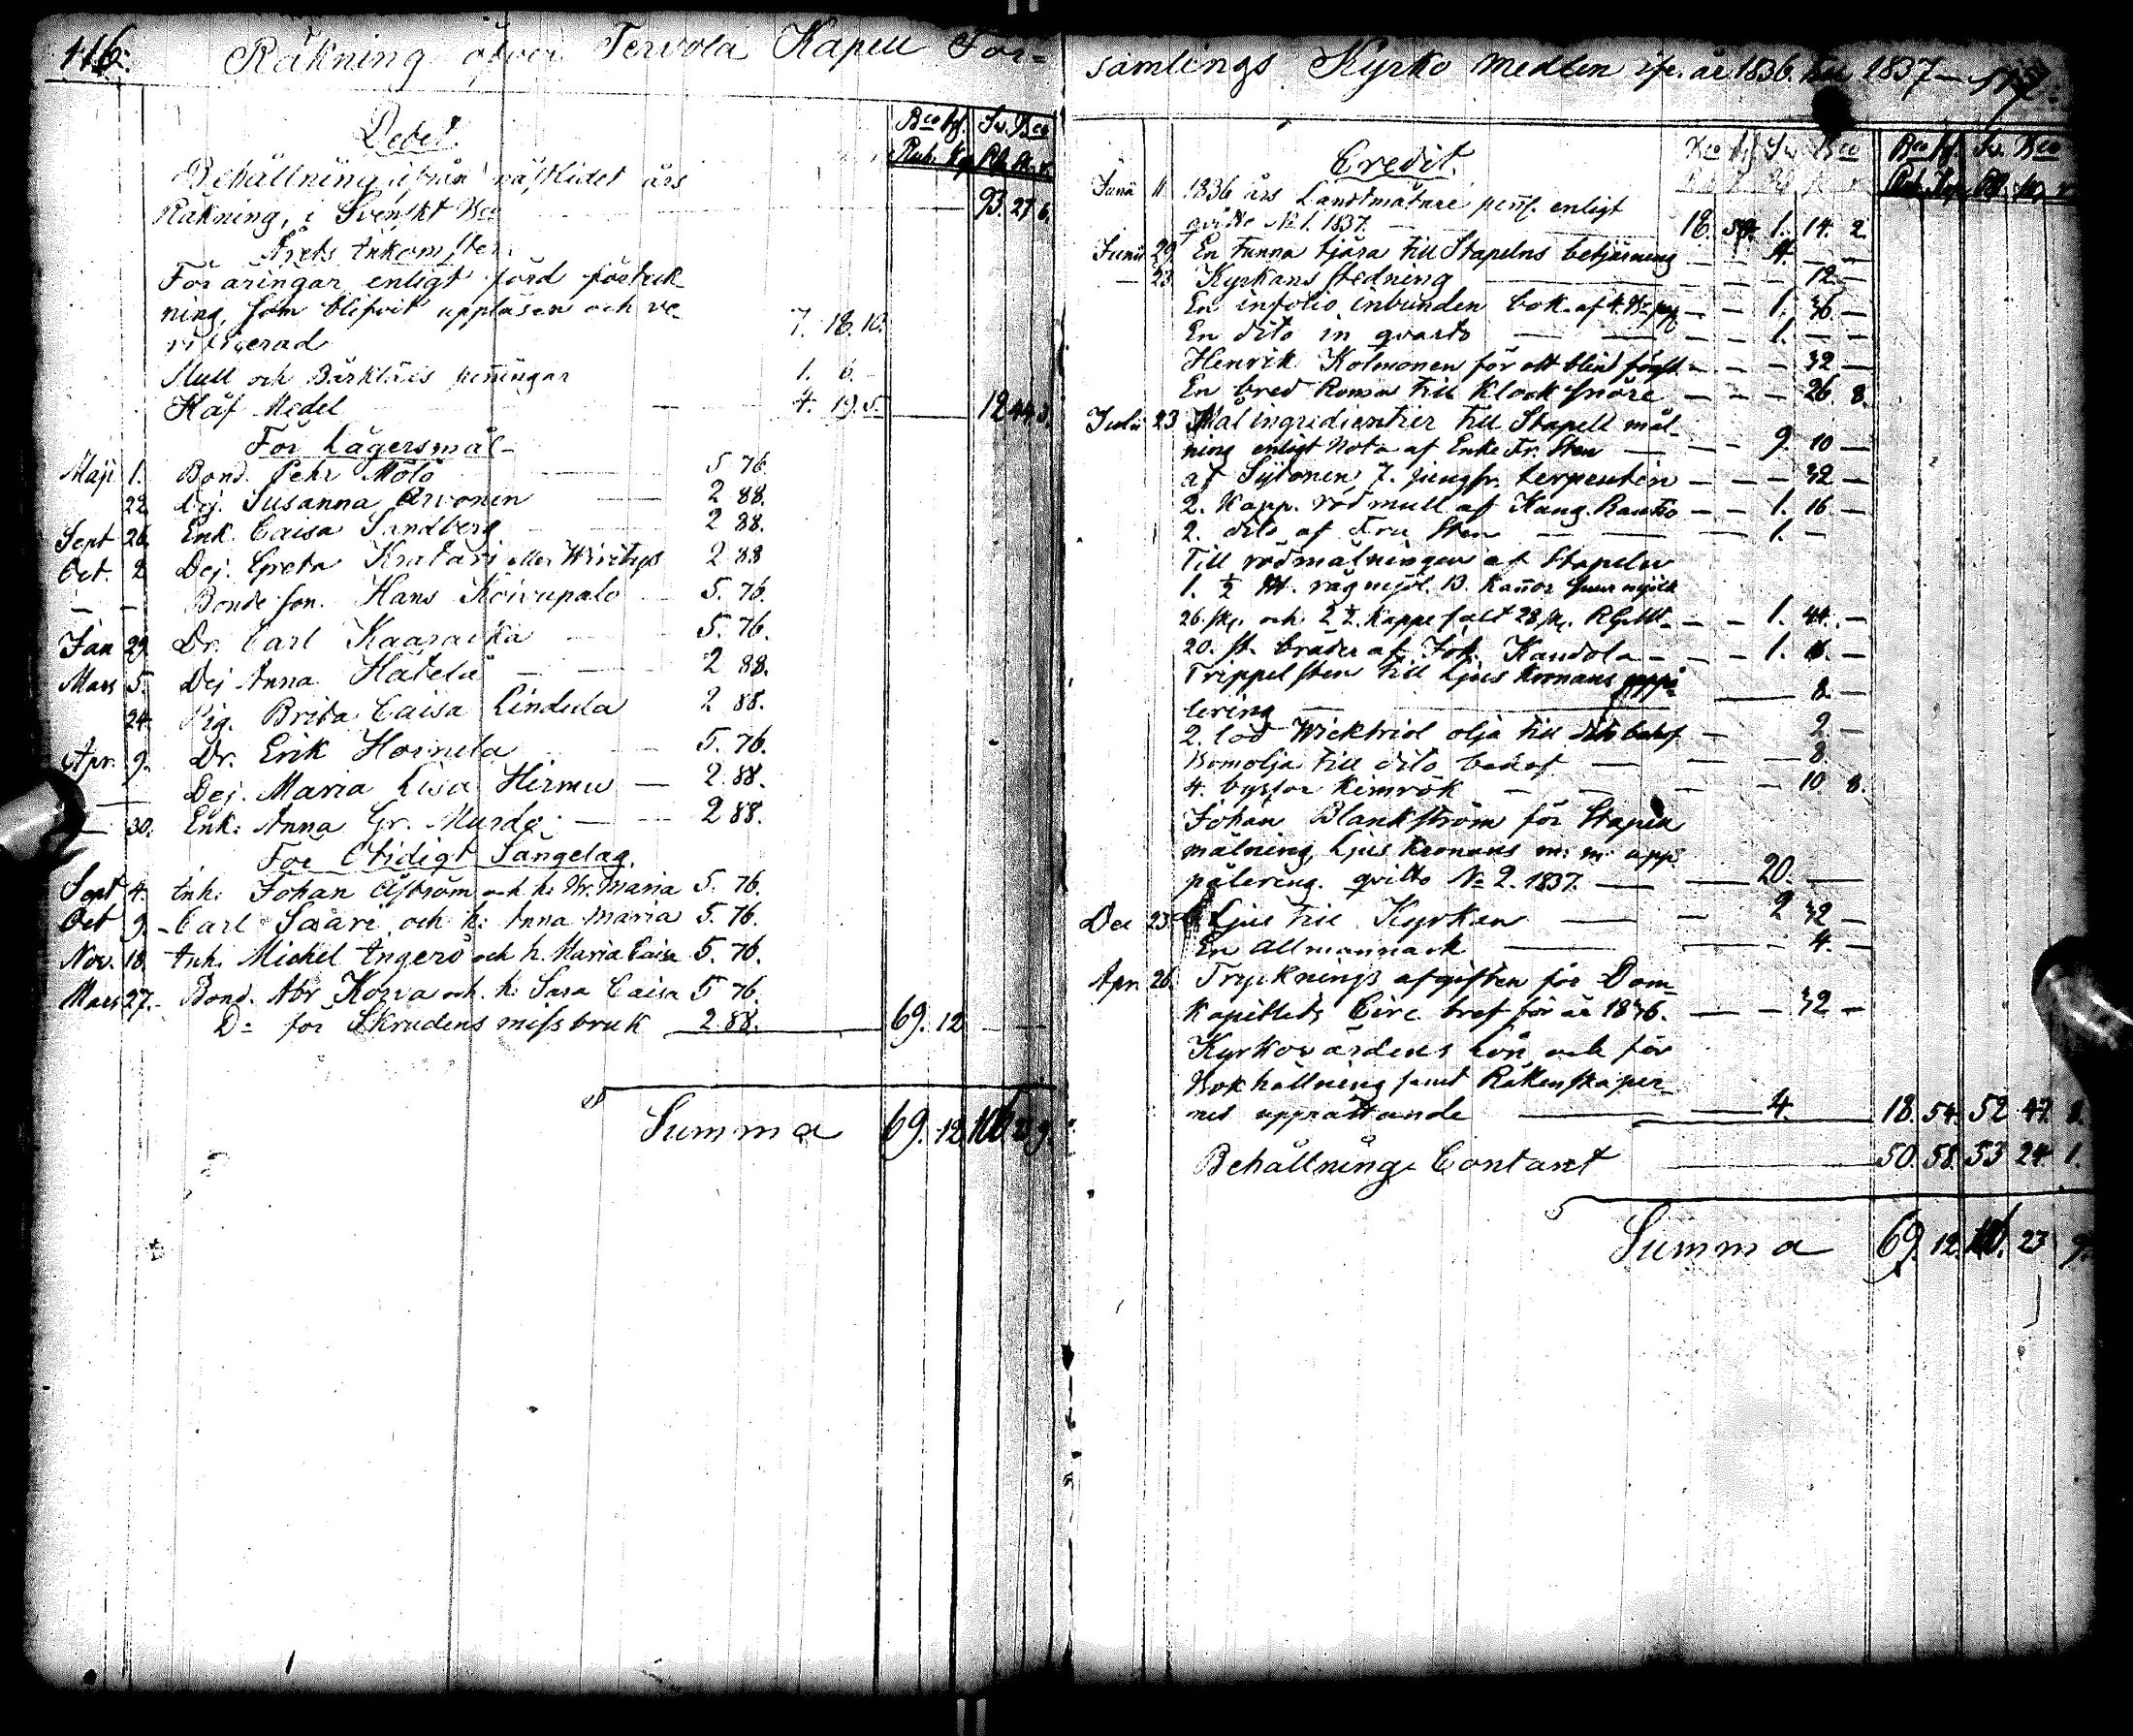 116.
Räkning öfver Tervola Kapell För=
Debet.
Bco Ass. Sv. Bco
Rub. Kop. Rd. sk. r.
Behållning ifrån nästlidet års
Räkning, i Svenskt Bco — 93. 27. 6.
Årets Inkomster.
Föräringar enligt förd förtek
ning, som blifvit uppläsen och ve-
rificerad 7. 18. 10.
Mull och Bårkläds peñingar 1. 6. -
Håf Medel — 4. 19. 5. — 12. 44. 3.
För Lägersmål
Maji 1. Bond. Pehr Mölö 5 76.
22. Dej. Susanna Arvonen — 2 88.
Sept 26. Enk. Caisa Sandberg — 2 88.
Oct. 2. Dej. Greta Kratari eller 2 88
— — Bonde son. Hans Koivupalo — 5. 76.
Jan 29. Dr. Carl Kaaraika — 5. 76.
Mars 5. Dej Anna Hatela — 2 88.
24. Pig. Brita Caisa Lindula 2 88.
Apr. 9. Dr. Erik Hornela — 5. 76.
— Dej. Maria Lisa Hirmu — 2 88.
— 30. Enk: Anna Gr. Murdo — 2 88.
För Otidigt Sängelag.
Sept 4. Inh: Johan Åström och h: Hr. Maria 5. 76.
Oct 9. Carl Saari och h: Anna Maria 5. 76.
Nov. 18. Inh. Michel Ingerö och h. Maria Caisa 5. 76.
Mars 27. Bond. Abr Korva och h: Sara Caisa 5 76.
Do för Skrudens missbruk 2 88. — 69. 12 — —
Summa 69. 12 106 23 9.
samlings Kyrko Medlen ifr. år 1836 till 1837 — 117.
Credit.
Bco Ass. Sv. Bco Bco Ass. Sv. Bco
Junii 11 1836 års Landtmäture peñ. enligt
qvitto No 1. 1837. — 18. 54. 1. 14. 2.
Junii 29 En Tunna tjära till Stapelns betjärning — — 4. — —
— 23 Kyrkans stedning — — — 12 —
En infolio inbunden bok af 4. — — 1. 36. —
En dito in qvarto — — — 1. — —
Henrik Kolmonen för ett blind — — — 32 —
En bred Remsa till Klock snöre — — — 26. 8.
Julii 23 Mål ingridientier till Stapell mål
ning enligt Nota af Enke Fr. Sten — — 9. 10 —
af Sytonen 7. jungfr. terpentin — — — 32 —
2. Kapp. röd mull af Kang. Rautio — — 1. 16 —
2. dito af Fru Sten — — — 1. —
Till rödmålningen af Stapeln
1. ½ rågmjöl. 13. kañor sur mjölk
26. sk. och 2 ½. Kappe salt 28 sk. RGlld — — 1. 44. —
20. st. bräder af Joh. Kaudola — — — 1. 6. —
Trippel sten till Ljus Kronans
lering — 8. —
2. lod Wicktriol olja till dito behof. — 2. —
Bomolja till dito behof — — — 8.
4. byttor Kimrök — — — 10 8.
Johan Blankström för Stapell
målning, Ljus Kronans m: m: upp
polering. qvitto No 2. 1837. — 20. —
Dec 23. Ljus till Kyrkan — — 2 32 —
En Allmannack — — 4. —
Apr 26. Trycknings afgiften för Dom=
Kapitlets Circ. bref för år 1836. — — 32 —
Kyrkovärdens lön och för
Bokhållning samt Räkenskaper
nes upprättande — 4. — 18. 54. 52. 47. 8.
Behållning Contant — 50. 58. 53 24. 1.
Summa 69. 12. 106. 23 9.